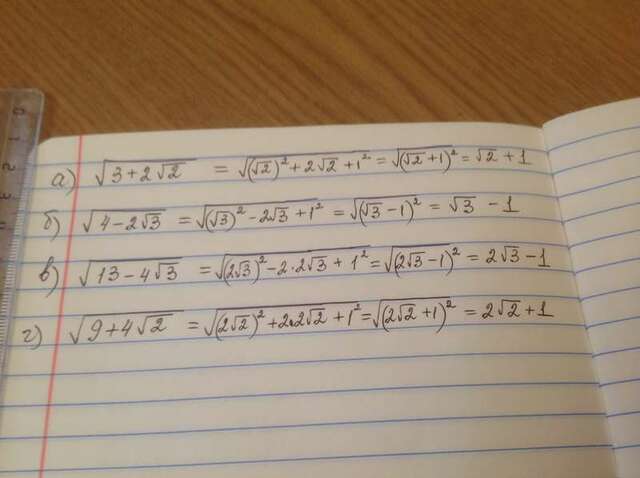 а) √(3+2√2) = √((√2)²+2√2+1²) = √((√2+1)²) = √2+1
б) √(4-2√3) = √((√3)²-2√3+1²) = √((√3-1)²) = √3-1
в) √(13-4√3) = √((2√3)²-2·2√3+1²) = √((2√3-1)²) = 2√3-1
г) √(9+4√2) = √((2√2)²+2·2√2+1²) = √((2√2+1)²) = 2√2+1